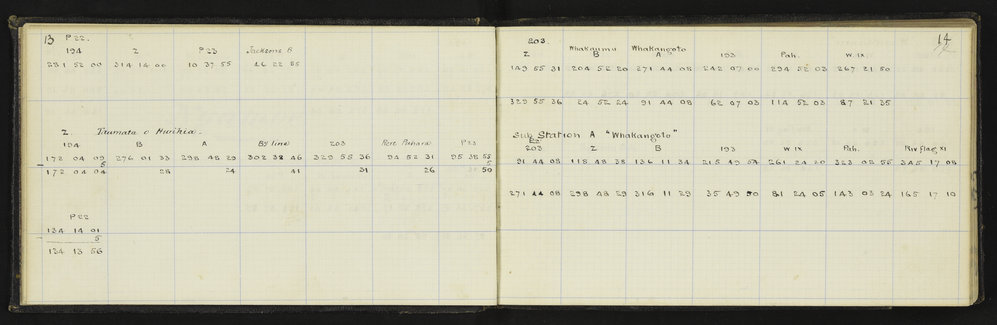 13 P22.
194 Z P23 Jacksons 6
281 52 00 314 14 00 10 37 55 46 22 55
Z. Taumata o Mwihia.
194 B A By line 203 Rere Puhara P23
172 04 09 276 01 33 298 48 29 302 38 46 329 55 36 94 52 31 95 38 55
5 5
172 04 04 28 24 41 31 26 50
P22
134 14 01
5
134 13 56
14
203
Z Whakaumu B Whakangoto A 193 Pah. W IX
149 55 31 204 52 20 271 44 08 242 07 00 294 52 03 267 21 50
329 55 36 24 52 24 91 44 08 62 07 03 114 52 03 87 21 35
Sub Station A "Whakangoto"
203 Z B 193 W IX Pah. Riv flag XI
91 44 08 118 48 38 136 11 34 215 49 54 261 24 20 323 08 55 345 17 08
271 44 08 298 48 29 316 11 29 35 49 50 81 24 05 143 03 24 165 17 10